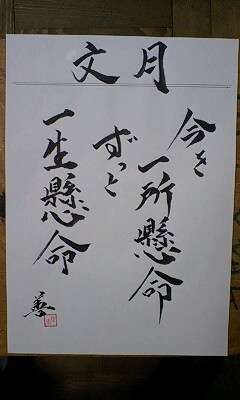 文月
今を
一所懸命
ずっと
一生懸命
善